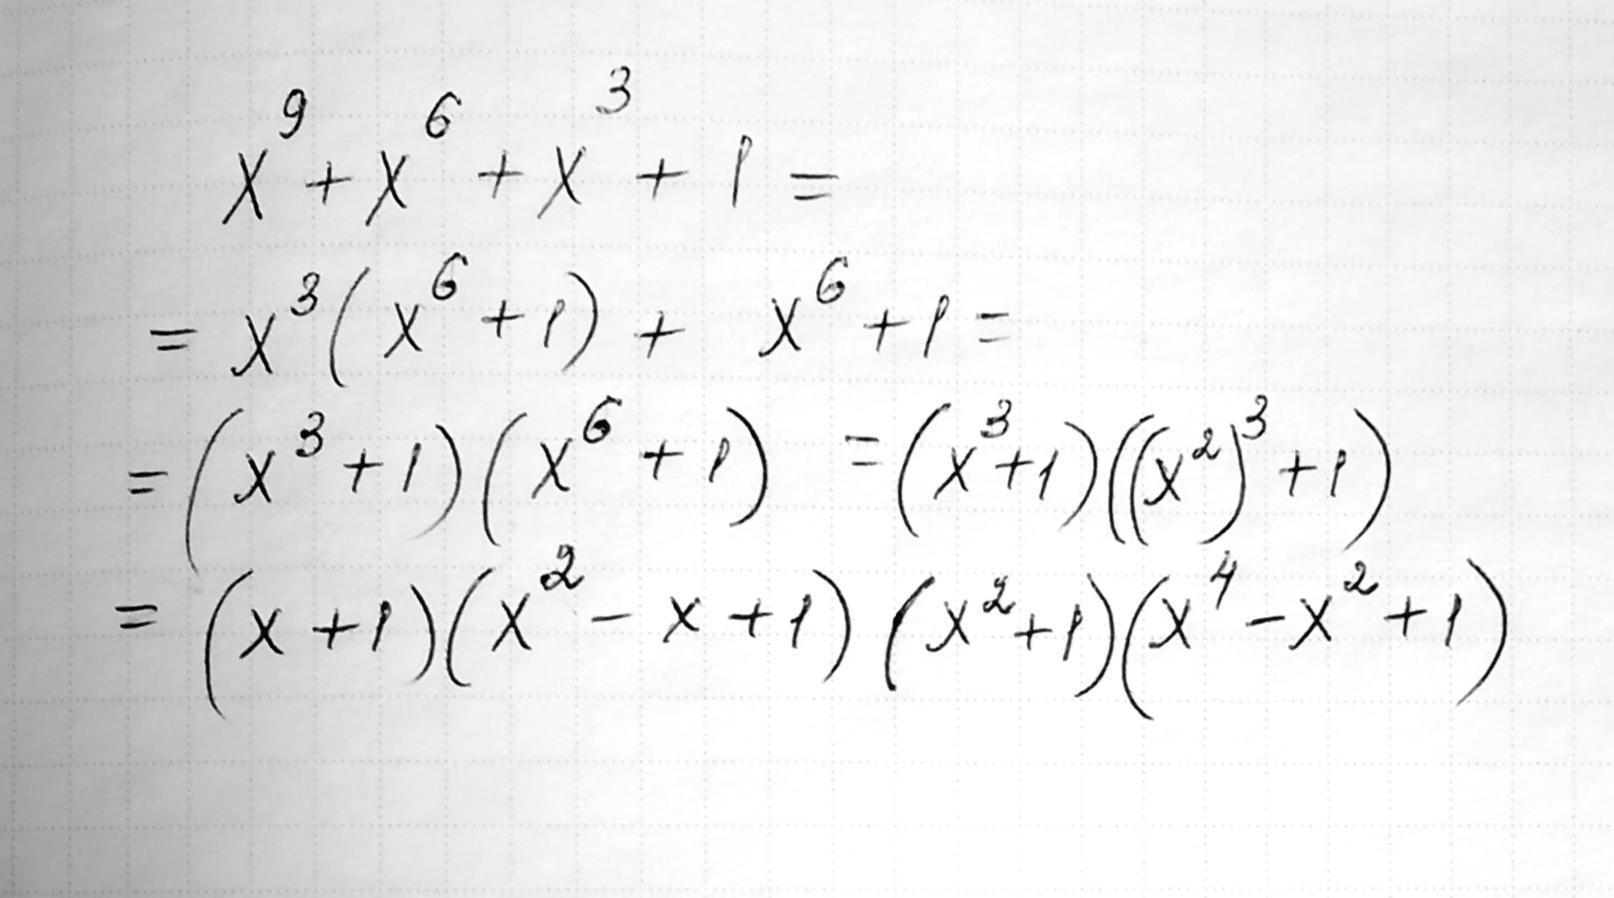 x⁹ + x⁶ + x³ + 1 =
= x³(x⁶ + 1) + x⁶ + 1 =
= (x³ + 1)(x⁶ + 1) = (x³ + 1)((x²)³ + 1)
= (x + 1)(x² − x + 1)(x² + 1)(x⁴ − x² + 1)